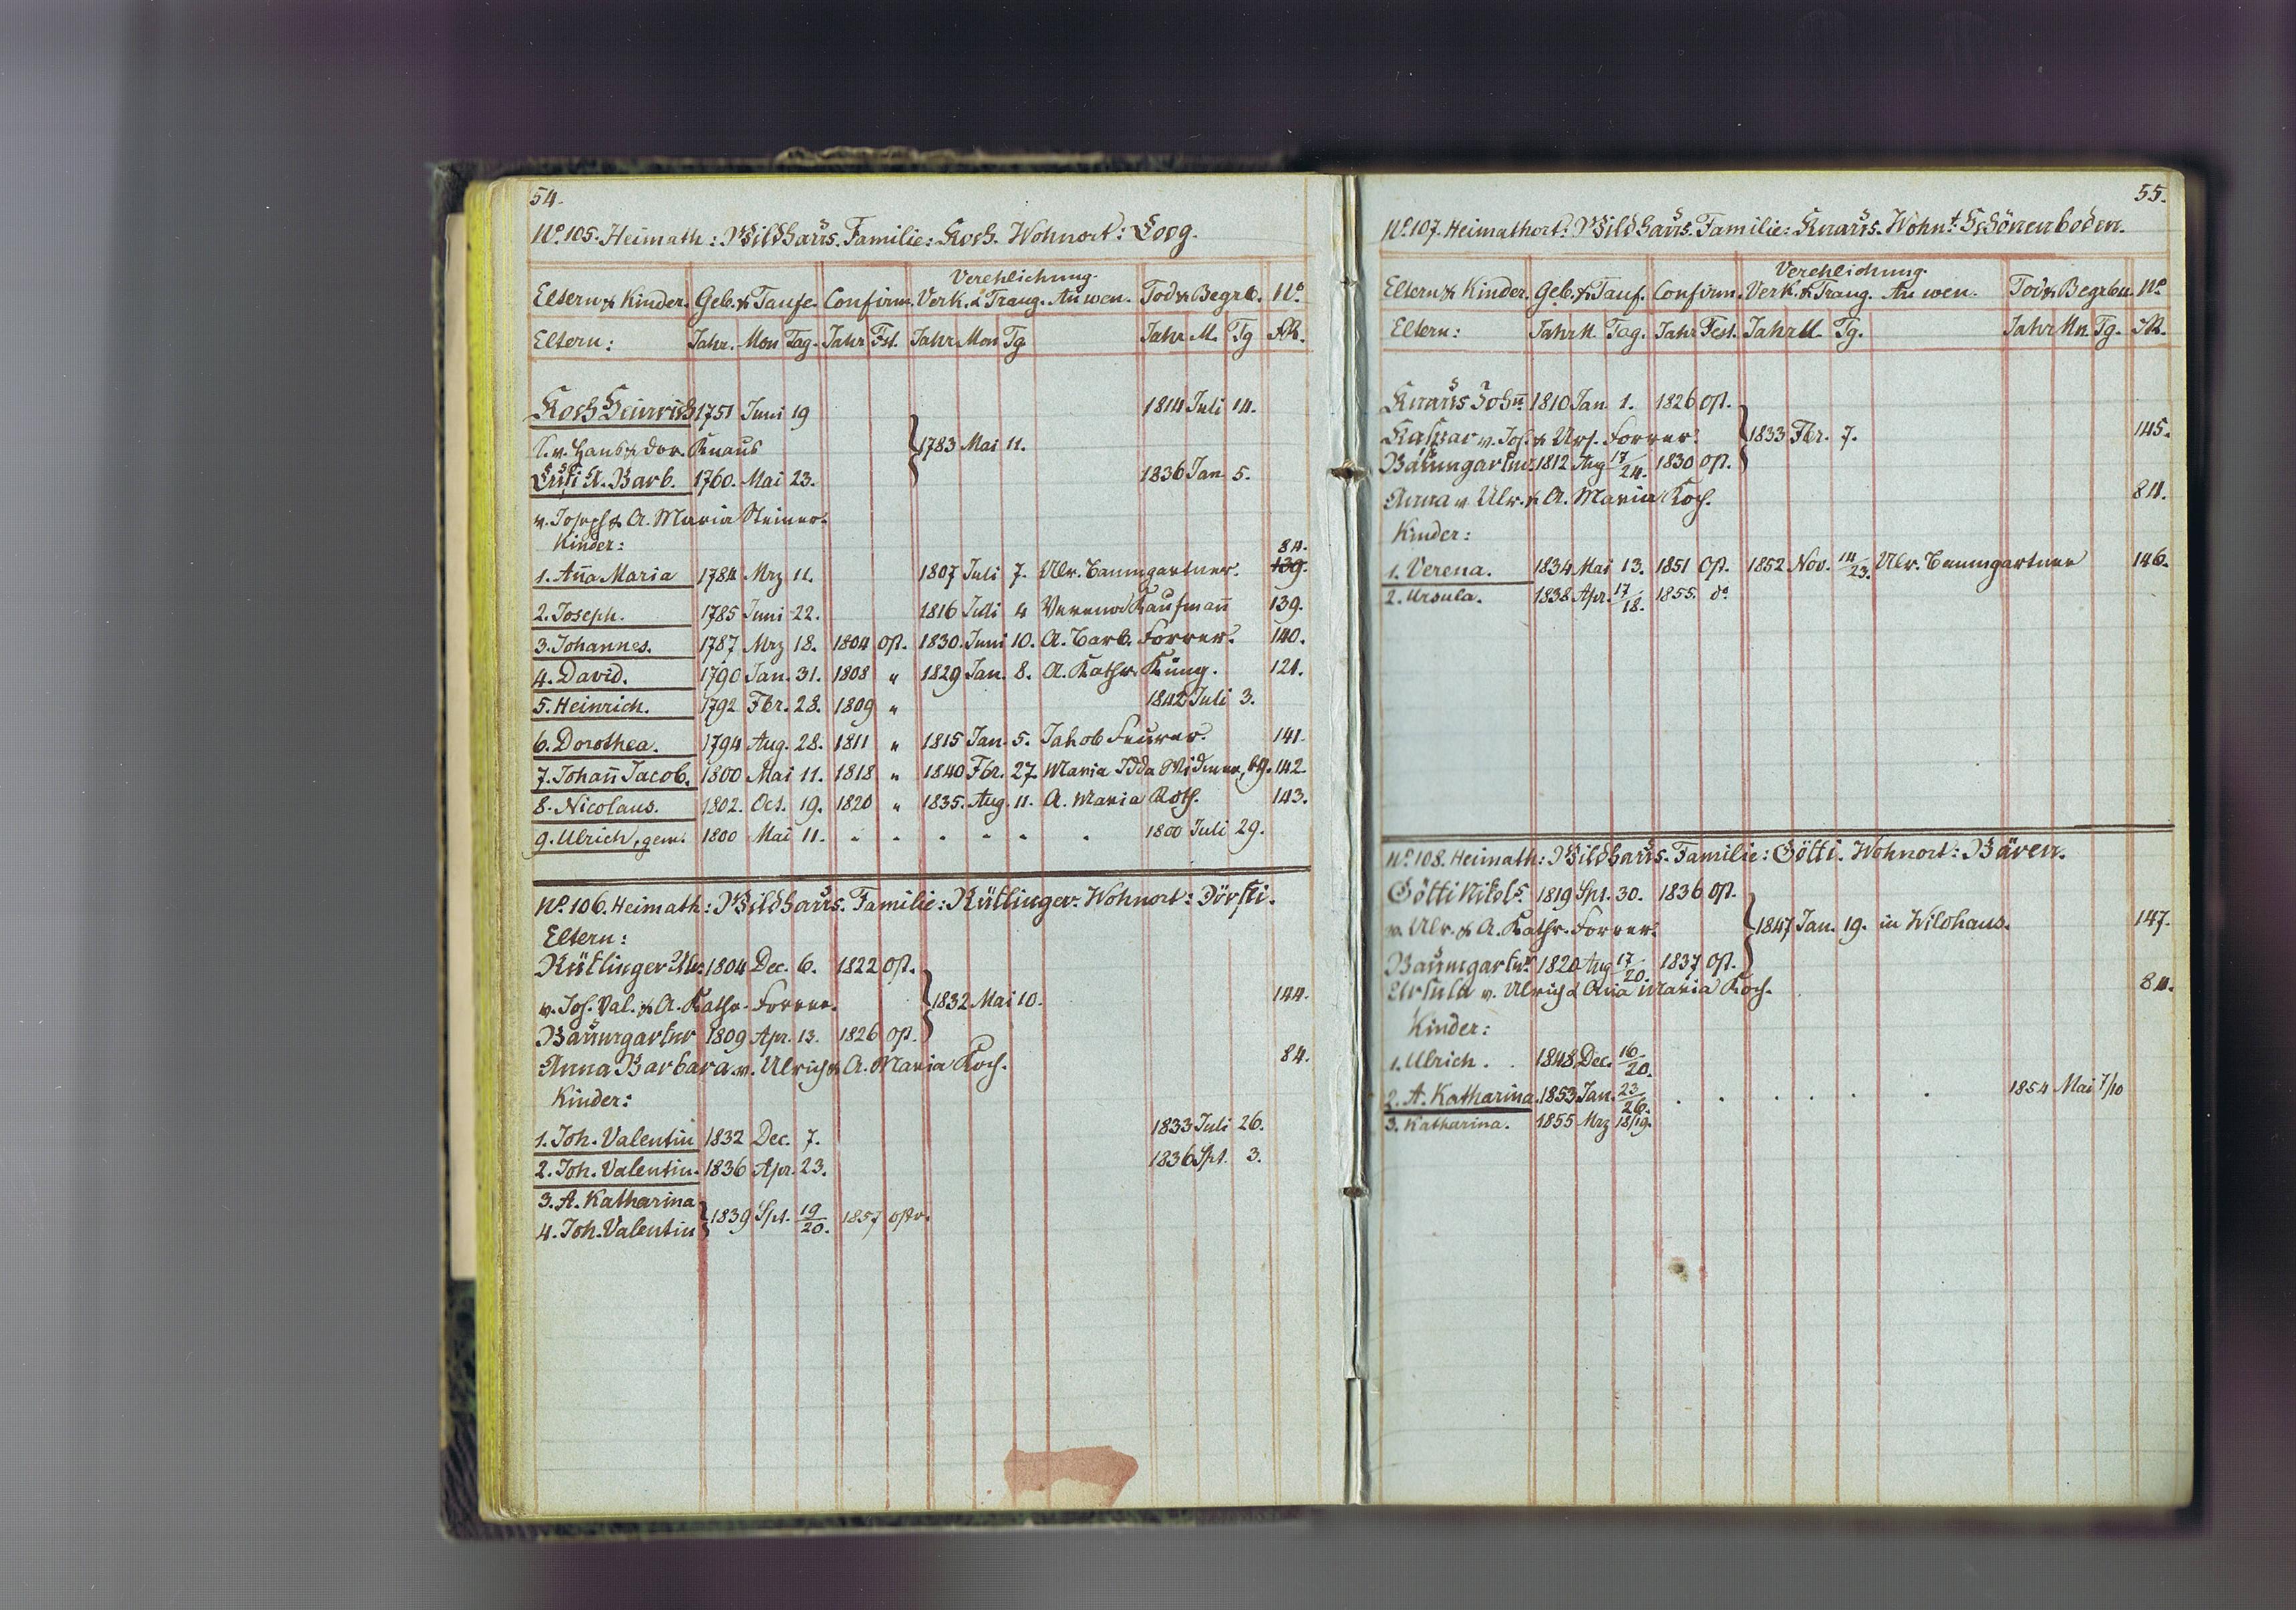 54.
No. 105. Heimath: Wildhaus. Familie: Koch. Wohnort: Loog.
Verehlichung.
Eltern & Kinder. Geb. & Taufe. Confirm. Verk. & Traug. An wen. Tod & Begrb. No.
Eltern: Jahr. Mon Tag. Jahr Fst. Jahr Mon Tg. Jahr M. Tg
Koch Heinrich 1751 Juni 19 1814 Juli 14.
v. Hans & Dor. Knaus } 1783 Mai 11.
A. Barb. 1760. Mai 23. 1836 Jan 5.
v. Joseph & A. Maria Steiner.
Kinder:
84.
1. Aña Maria 1784 Mrz 11. 1807 Juli 7. Ulr. Baumgartner. 139.
2. Joseph. 1785 Juni 22. 1816 Juli 4 Verena Kaufmañ 139.
3. Johannes. 1787 Mrz 18. 1804 Ost. 1830. Juni 10. A. Barb. Forrer. 140.
4. David. 1790 Jan. 31. 1808 " 1829 Jan. 8. A. Kathr. Küng. 121.
5. Heinrich. 1792 Fbr. 28. 1809 " 1842 Juli 3.
6. Dorothea. 1794 Aug. 28. 1811 " 1815 Jan. 5. Jakob Feurer. 141.
7. Johañ Jacob. 1800 Mai 11. 1818 " 1840 Fbr. 27. Maria Idda Widmer, 142.
8. Nicolaus. 1802. Oct. 19. 1820 " 1835. Aug. 11. A. Maria Roth. 143.
9. Ulrich, gem. 1800 Mai 11. 1800 Juli 29.
No. 106. Heimath: Wildhaus. Familie: Rütlinger. Wohnort: Dörfli.
Eltern:
Rütlinger 1804 Dec. 6. 1822 Ost.
v. Joh. Val. & A. Kathr. Forrer. } 1832 Mai 10. 144.
Baumgartnr 1809 Apr. 13. 1826 Ost.
Anna Barbara. v. Ulrich & A. Maria Koch. 84.
Kinder:
1. Joh. Valentin 1832 Dec. 7. 1833 Juli 26.
2. Joh. Valentin. 1836 Apr. 23. 1836 Spt. 3.
3. A. Katharina
4. Joh. Valentin } 1839 Spt. 19/20. 1857 Ostr.
55.
No. 107. Heimathort: Wildhaus. Familie: Knaus. Wohnt. Schönenboden.
Verehlichung.
Eltern & Kinder. Geb. & Tauf. Confirm. Verk. & Traug. An wen. Tod & Begrbn. No.
Eltern: Jahr M. Tag. Jahr Fest. Jahr M. Tg. Jahr Mn. Tg.
Knaus Johñ 1810 Jan. 1. 1826 Ost.
Kaspar v. Jos. & Urs. Forrer. } 1833 Fbr. 7. 145.
Baumgartner 1812 Aug 17/24. 1830 Ost.
Anna v. Ulr. & A. Maria Koch. 84.
Kinder:
1. Verena. 1834 Mai 13. 1851 Ost. 1852 Nov. 14/23. Ulr. Baumgartner 146.
2. Ursula. 1838 Apr. 17/18. 1855. do
No. 108. Heimath: Wildhaus. Familie: Götti. Wohnort: Bären.
Götti Nikols. 1819 Spt. 30. 1836 Ost.
v. Ulr. & A. Kathr. Forrer. } 1847 Jan. 19. in Wildhaus. 147.
Baumgartnr. 1820 Aug 17/20. 1837 Ost.
Ursula v. Ulrich & Aña Maria Koch. 84.
Kinder:
1. Ulrich. 1848. Dec. 16/20.
2. A. Katharina. 1853 Jan. 23/26. 1854 Mai 7/10
3. Katharina. 1855 Mrz 18/19.